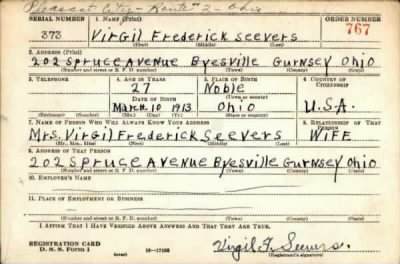 Pleasant City - Route #2 - Ohio
SERIAL NUMBER 1. NAME (Print) ORDER NUMBER
373 Virgil Frederick Seevers 767
(First) (Middle) (Last)
2. ADDRESS (Print)
202 Spruce Avenue Byesville Gurnsey Ohio
(Number and street or R. F. D. number) (Town) (County) (State)
3. TELEPHONE 4. AGE IN YEARS 5. PLACE OF BIRTH 6. COUNTRY OF CITIZENSHIP
27 Noble
DATE OF BIRTH (Town or county)
March 10 1913 Ohio U.S.A.
(Exchange) (Number) (Mo.) (Day) (Yr.) (State or country)
7. NAME OF PERSON WHO WILL ALWAYS KNOW YOUR ADDRESS 8. RELATIONSHIP OF THAT PERSON
Mrs. Virgil Frederick Seevers WIFE
(Mr., Mrs., Miss) (First) (Middle) (Last)
9. ADDRESS OF THAT PERSON
202 Spruce Avenue Byesville Gurnsey Ohio
(Number and street or R. F. D. number) (Town) (County) (State)
10. EMPLOYER'S NAME
11. PLACE OF EMPLOYMENT OR BUSINESS
(Number and street or R. F. D. number) (Town) (County) (State)
I AFFIRM THAT I HAVE VERIFIED ABOVE ANSWERS AND THAT THEY ARE TRUE.
REGISTRATION CARD
D. S. S. Form 1 (over) 16-17105 Virgil F. Seevers.
(Registrant's signature)